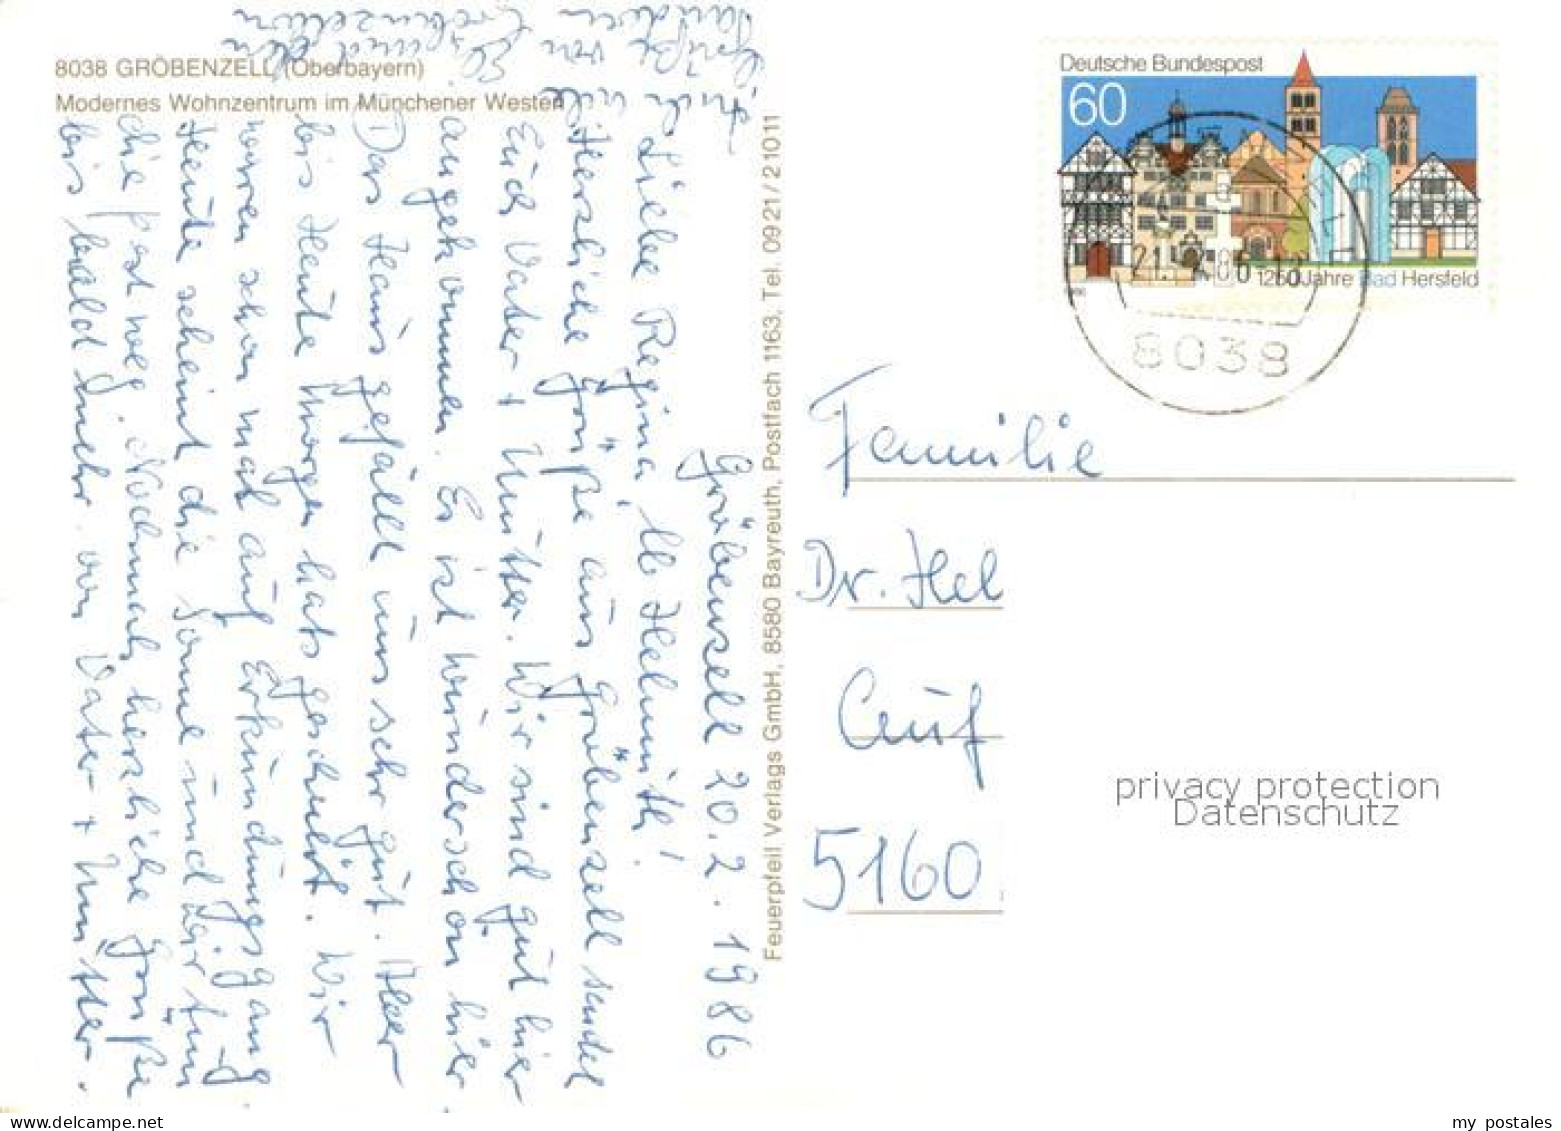 8038 GRÖBENZELL (Oberbayern)
Modernes Wohnzentrum im Münchener Westen
Gröbenzell 20.2.1986
Liebe Regina, lb Helmuth!
Herzliche Grüße aus Gröbenzell sendet
Euch Vater + Mutter. Wir sind gut hier
angekommen. Es ist wunderschön hier
Das Haus gefällt uns sehr gut. Aber
bis Heute Morgen hats geschneit. Wir
waren schon mal auf Erkundungsgang
Heute scheint die Sonne und wir tun
die Post weg. Nochmals herzliche Grüße
bis bald mehr. von Vater + Mutter.
viele
Grüße von
Gröbenzellern
Feuerpfeil Verlags GmbH, 8580 Bayreuth, Postfach 1163, Tel. 0921/21011
Deutsche Bundespost
60
1250 Jahre Bad Hersfeld
1986
21.
86
8038
Familie
Dr. Hel
Auf
5160
privacy protection
Datenschutz
my postales